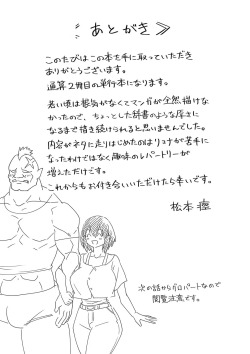 ≪あとがき≫
このたびはこの本を手に取っていただき
ありがとうございます。
通算2冊目の単行本になります。
若い頃は根気がなくてマンガが全然描けな
かったので、ちょっとした辞書のような厚さに
なるまで描き続けられると思いませんでした。
内容がネリに走りはじめたのはリョナが苦手に
なったわけではなく趣味のレパートリーが
増えただけです。
これからもお付き合いいただけたら幸いです。
松本
次の話からグロパートなので
閲覧注意です。